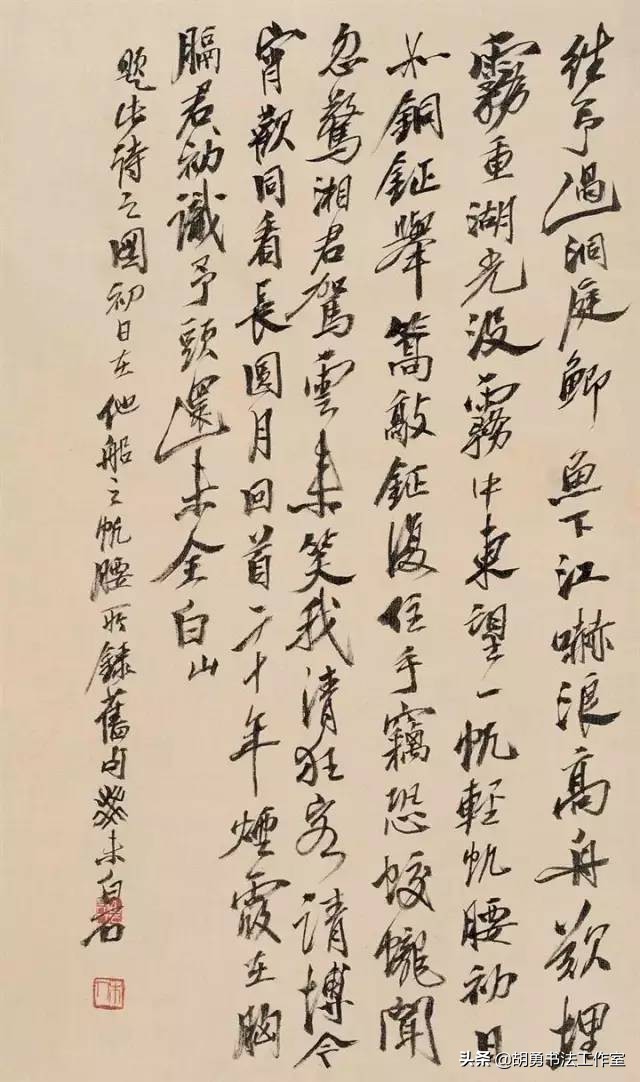 往予過洞庭鯽魚下江嚇浪高舟欲埋
霧重湖光没霧中東望一帆輕帆腰初日
如銅鉦舉篙敲鉦復住手竊恐蛟龍聞
忽驚湘君駕雲来笑我清狂客請博今
宵歡同看長圓月回首二十年煙霞在胸
膈君初識予頭還未全白山
題此詩之圖初日在他船之帆腰所錄舊句癸未白石
头条 @胡勇书法工作室